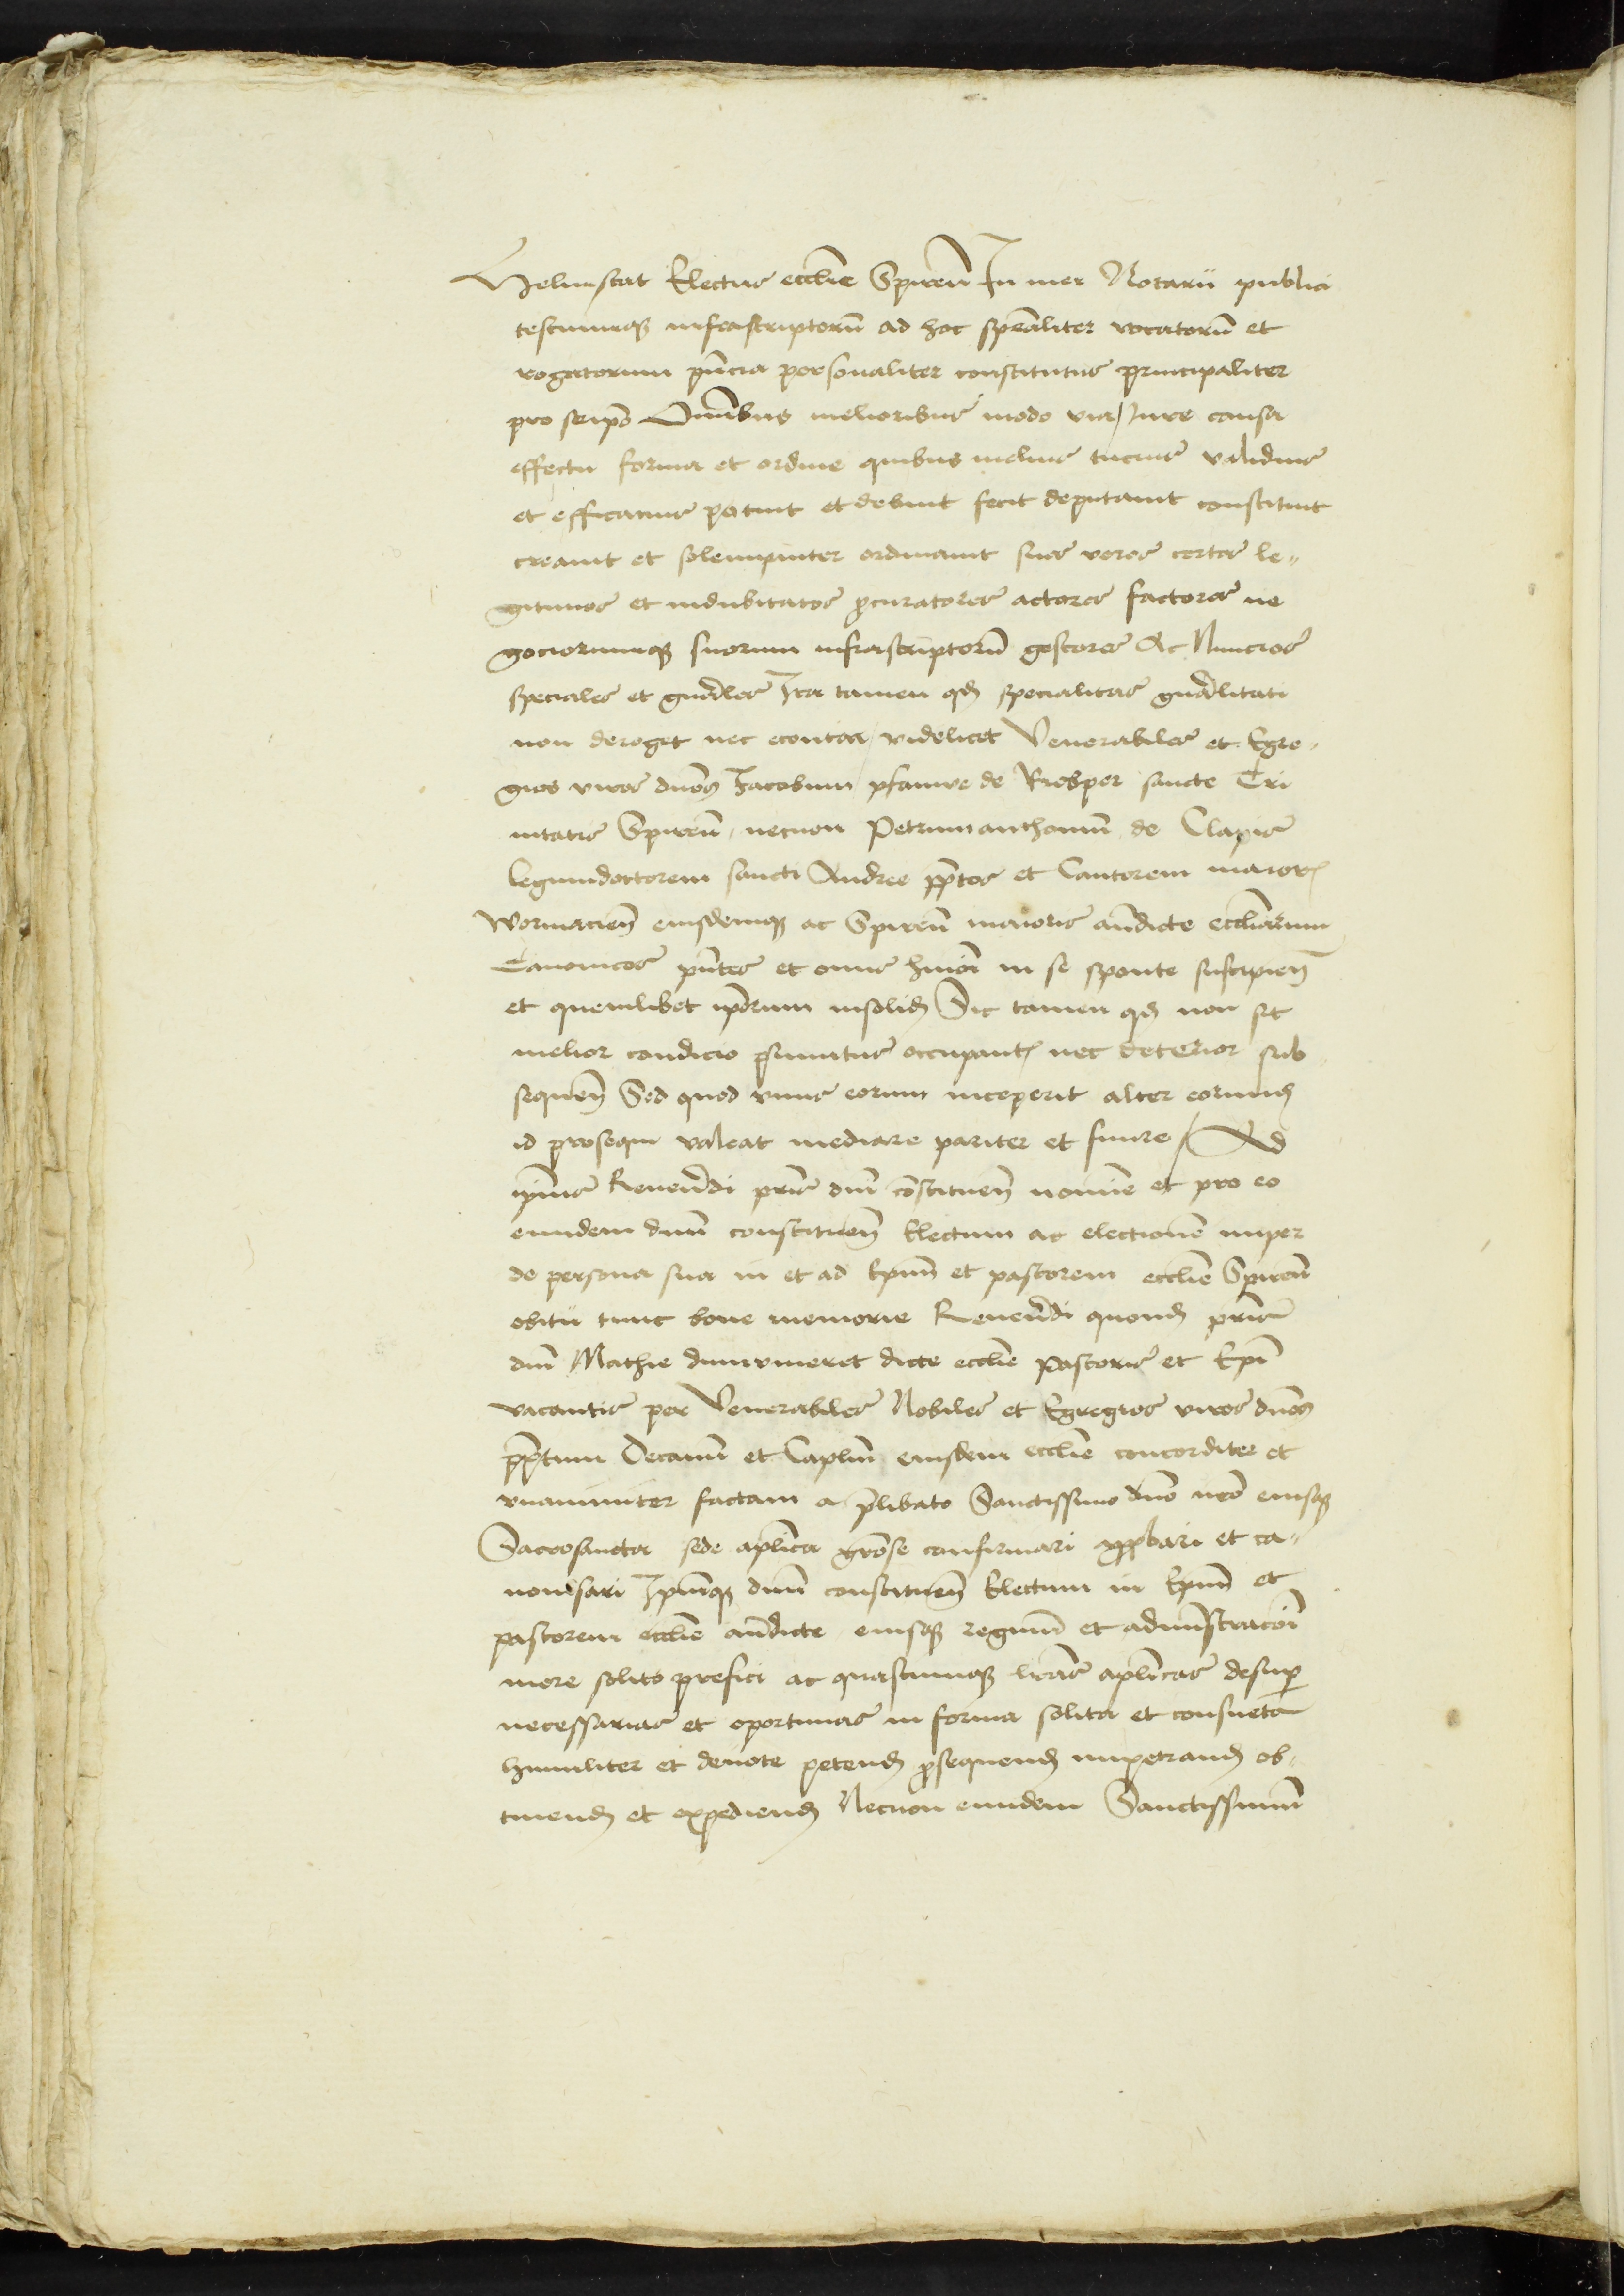 Helmstat Electus ecclie Spiren In mei Notarii publici
testiumq infrascriptoru ad hoc spealiter vocatoru et
rogatorum pncia personaliter constitutus principaliter
pro seipo Omibus melioribus modo via Iure causa
effectu forma et ordine quibus melius tucius validius
et efficacius potuit et debuit fecit deputauit constituit
creauit et solempniter ordinauit suos veros certos le-
gitimos et indubitatos pcuratores actores factores ne
gociorumq suorum infrascriptoru gestores Ac Nuncios
speciales et gnales Ita tamen qd specialitas gnalitati
non deroget nec econtra videlicet Venerabiles et Egre-
gios viros dnos Iacobum pfawe de Riesper sancte Tri
nitatis Spiren necnon Petrumanthoniu de Clapis
legumdoctorem sancti Andree pptos et Cantorem maioris
wormacien eiusdemq ac Spiren maioris andicte eccliarum
Canonicos pntes et onus hmoi in se sponte suscipien
et quemlibet iporum insolid Sic tamen qd non sit
melior condicio primitus occupant nec deterior sub
sequen Sed quod vnus eorum inceperit alter eorund
id prosequi valeat mediare pariter et finire Ad
ipius Reuerendi pris dni constituen nomine et pro eo
eundem dnm constituen Electum ac electione nuper
de persona sua in et ad Epum et pastorem ecclie Spiren
obitu tunc bone memorie Reuerendi quond pris
dni Mathie dumviueret dicte ecclie Pastoris et Epi
vacantis per Venerabiles Nobiles et Egregios viros dnos
pptum Decanu et Caplm eiusdem ecclie concorditer et
vnanimiter factam a plibato Sanctissimo dno nro eiusq
Sacrosancta sede aplica grose confirmari approbari et ca-
nonisari Ipumq dnm constituen Electum in Epum et
pastorem ecclie andicte eiusq regimi et administracoi
more solito prefici ac quascumq lras aplicas desup
necessarias et oportunas in forma solita et consueta
humiliter et deuote petend psequend impetrand ob-
tinend et expediend Necnon eundem Sanctissimu